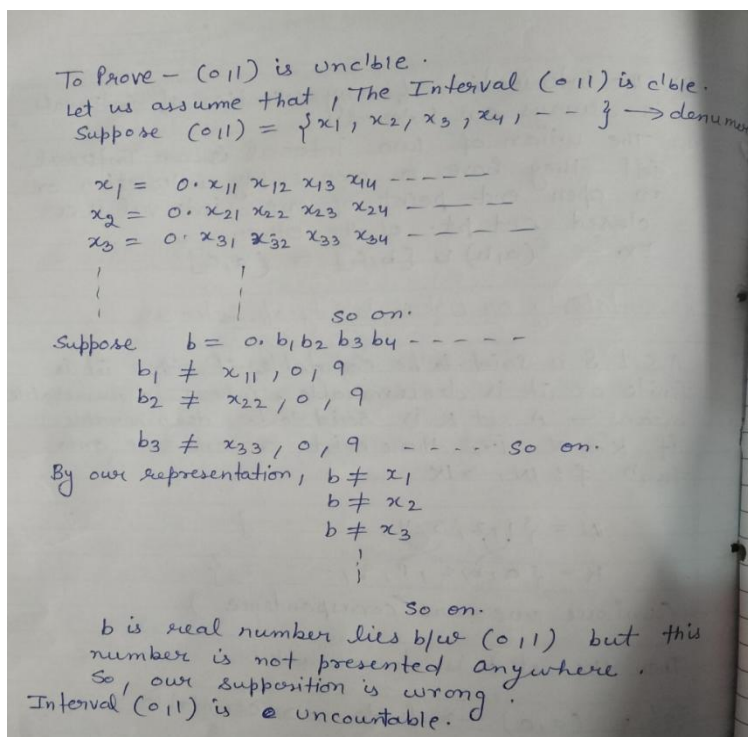 To Prove - (0,1) is unc'ble.
Let us assume that, The Interval (0,1) is c'ble.
Suppose (0,1) = {x1, x2, x3, x4, - - } → denumer
x1 = 0. x11 x12 x13 x14 - - - - - -
x2 = 0. x21 x22 x23 x24 - - - -
x3 = 0. x31 x32 x33 x34 - - - -
so on.
Suppose b = 0. b1 b2 b3 b4 - - - - - -
b1 ≠ x11, 0, 9
b2 ≠ x22, 0, 9
b3 ≠ x33, 0, 9 - - - - so on.
By our representation, b ≠ x1
b ≠ x2
b ≠ x3
so on.
b is real number lies b/w (0,1) but this
number is not presented anywhere.
So, our supposition is wrong.
Interval (0,1) is uncountable.